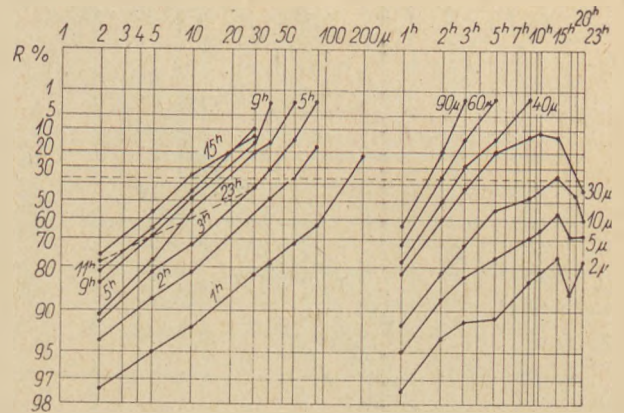 R %
1 2 3 4 5 10 20 30 50 100 200 μ
1ʰ 2ʰ 3ʰ 5ʰ 7ʰ 10ʰ 15ʰ 20ʰ 23ʰ
1
5
10
20
30
50
60
70
80
90
95
97
98
9ʰ 5ʰ
15ʰ
23ʰ
3ʰ
11ʰ
9ʰ
5ʰ
2ʰ
1ʰ
90μ 60μ 40μ
30μ
10μ
5μ
2μ